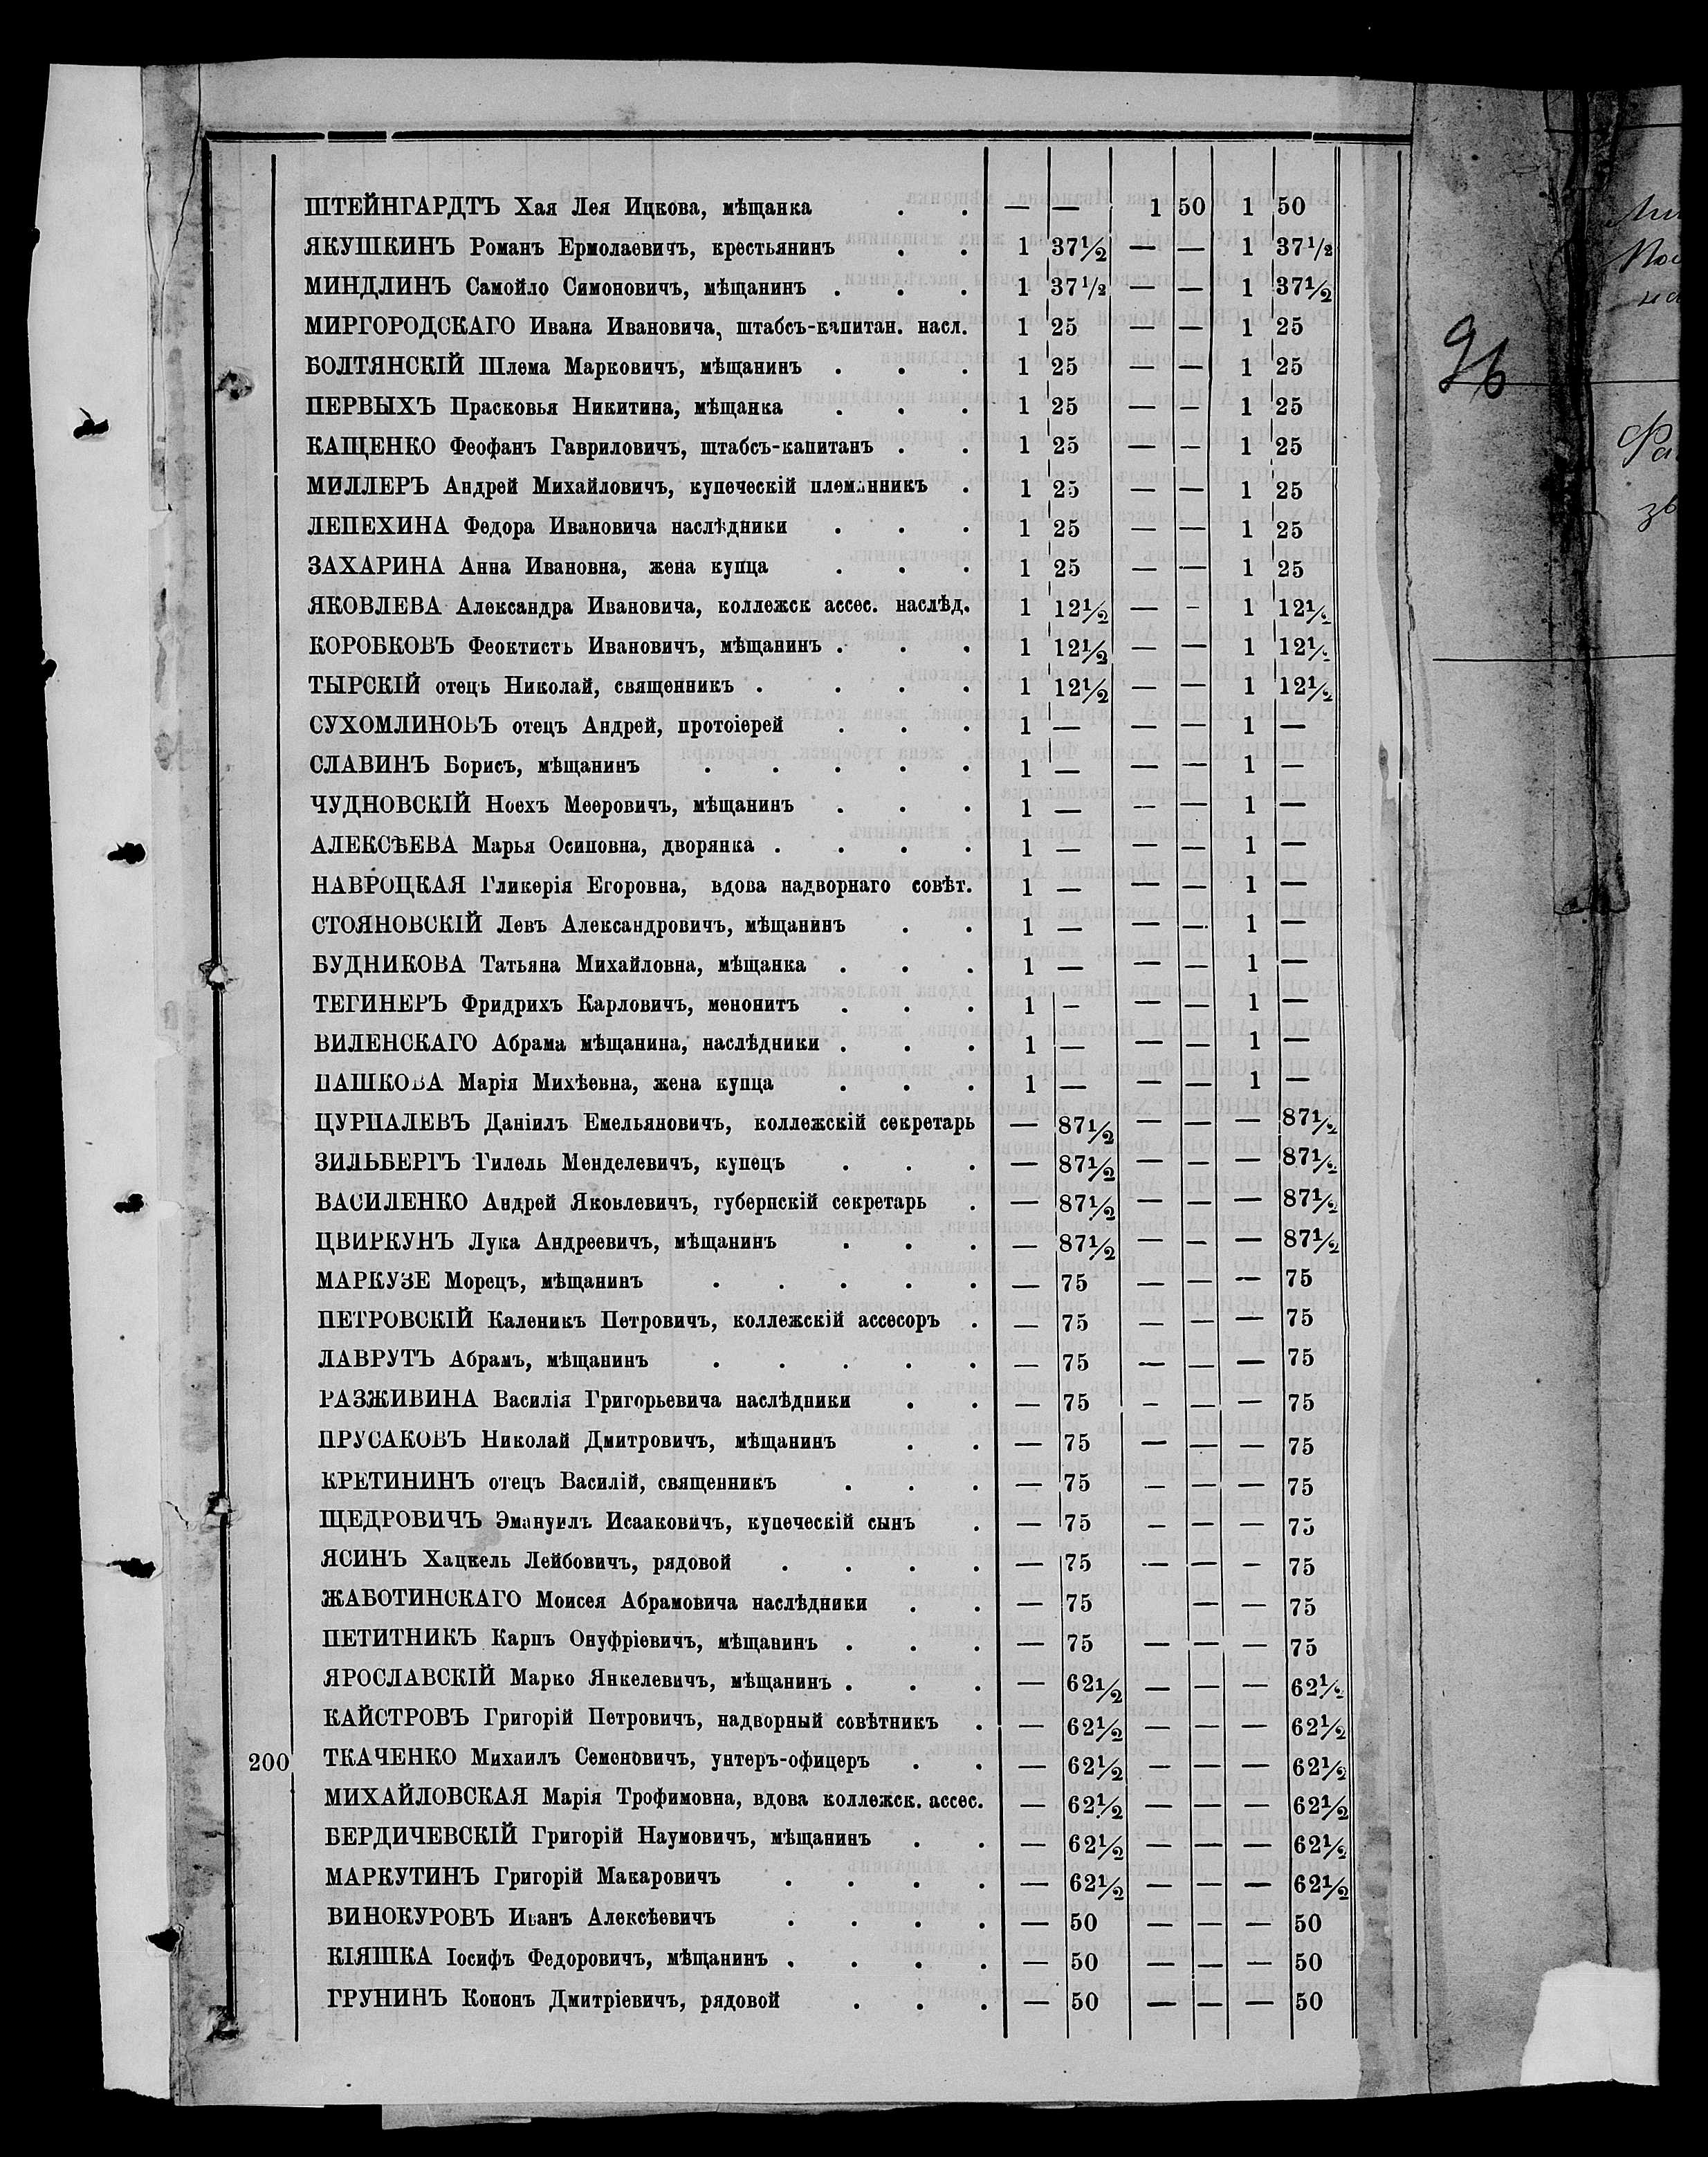 ШТЕЙНГАРДТЪ Хая Лея Ицкова, мѣщанка . . — — 1 50 1 50
ЯКУШКИНЪ Романъ Ермолаевичъ, крестьянинъ . . 1 37½ — — 1 37½
МИНДЛИНЪ Самойло Симоновичъ, мѣщанинъ . . . 1 37½ — — 1 37½
МИРГОРОДСКАГО Ивана Ивановича, штабсъ-капитан. насл. 1 25 — — 1 25
БОЛТЯНСКІЙ Шлема Марковичъ, мѣщанинъ . . . 1 25 — — 1 25
ПЕРВЫХЪ Прасковья Никитина, мѣщанка . . . 1 25 — — 1 25
КАЩЕНКО Феофанъ Гавриловичъ, штабсъ-капитанъ . . 1 25 — — 1 25
МИЛЛЕРЪ Андрей Михайловичъ, купеческій племянникъ . 1 25 — — 1 25
ЛЕПЕХИНА Федора Ивановича наслѣдники . . . 1 25 — — 1 25
ЗАХАРИНА Анна Ивановна, жена купца . . . 1 25 — — 1 25
ЯКОВЛЕВА Александра Ивановича, коллежск ассес. наслѣд. 1 12½ — — 1 12½
КОРОБКОВЪ Феоктистъ Ивановичъ, мѣщанинъ . . . 1 12½ — — 1 12½
ТЫРСКІЙ отецъ Николай, священникъ . . . . 1 12½ — — 1 12½
СУХОМЛИНОВЪ отецъ Андрей, протоіерей . . . 1 — — — 1 —
СЛАВИНЪ Борисъ, мѣщанинъ . . . . . 1 — — — 1 —
ЧУДНОВСКІЙ Ноехъ Мееровичъ, мѣщанинъ . . . 1 — — — 1 —
АЛЕКСѢЕВА Марья Осиповна, дворянка . . . . 1 — — — 1 —
НАВРОЦКАЯ Гликерія Егоровна, вдова надворнаго совѣт. 1 — — — 1 —
СТОЯНОВСКІЙ Левъ Александровичъ, мѣщанинъ . . 1 — — — 1 —
БУДНИКОВА Татьяна Михайловна, мѣщанка . . . 1 — — — 1 —
ТЕГИНЕРЪ Фридрихъ Карловичъ, менонитъ . . . 1 — — — 1 —
ВИЛЕНСКАГО Абрама мѣщанина, наслѣдники . . . 1 — — — 1 —
ПАШКОВА Марія Михѣевна, жена купца . . . 1 — — — 1 —
ЦУРПАЛЕВЪ Даніилъ Емельяновичъ, коллежскій секретарь — 87½ — — — 87½
ЗИЛЬБЕРГЪ Гилель Менделевичъ, купецъ . . . — 87½ — — — 87½
ВАСИЛЕНКО Андрей Яковлевичъ, губернскій секретарь . — 87½ — — — 87½
ЦВИРКУНЪ Лука Андреевичъ, мѣщанинъ . . . — 87½ — — — 87½
МАРКУЗЕ Морецъ, мѣщанинъ . . . . . — 75 — — — 75
ПЕТРОВСКІЙ Каленикъ Петровичъ, коллежскій ассесоръ . — 75 — — — 75
ЛАВРУТЪ Абрамъ, мѣщанинъ . . . . . — 75 — — — 75
РАЗЖИВИНА Василія Григорьевича наслѣдники . . — 75 — — — 75
ПРУСАКОВЪ Николай Дмитровичъ, мѣщанинъ . . — 75 — — — 75
КРЕТИНИНЪ отецъ Василій, священникъ . . . — 75 — — — 75
ЩЕДРОВИЧЪ Эмануилъ Исааковичъ, купеческій сынъ . — 75 — — — 75
ЯСИНЪ Хацкель Лейбовичъ, рядовой . . . . — 75 — — — 75
ЖАБОТИНСКАГО Моисея Абрамовича наслѣдники . . — 75 — — 75
ПЕТИТНИКЪ Карпъ Онуфріевичъ, мѣщанинъ . . . — 75 — — — 75
ЯРОСЛАВСКІЙ Марко Янкелевичъ, мѣщанинъ . . . — 62½ — — — 62½
КАЙСТРОВЪ Григорій Петровичъ, надворный совѣтникъ . — 62½ — — — 62½
200 ТКАЧЕНКО Михаилъ Семеновичъ, унтеръ-офицеръ . . — 62½ — — — 62½
МИХАЙЛОВСКАЯ Марія Трофимовна, вдова коллежск. ассес. — 62½ — — — 62½
БЕРДИЧЕВСКІЙ Григорій Наумовичъ, мѣщанинъ . . — 62½ — — — 62½
МАРКУТИНЪ Григорій Макаровичъ . . . . — 62½ — — — 62½
ВИНОКУРОВЪ Иванъ Алексѣевичъ . . . . — 50 — — — 50
КІЯШКА Іосифъ Федоровичъ, мѣщанинъ . . . . — 50 — — — 50
ГРУНИНЪ Кононъ Дмитріевичъ, рядовой . . . — 50 — — — 50
96